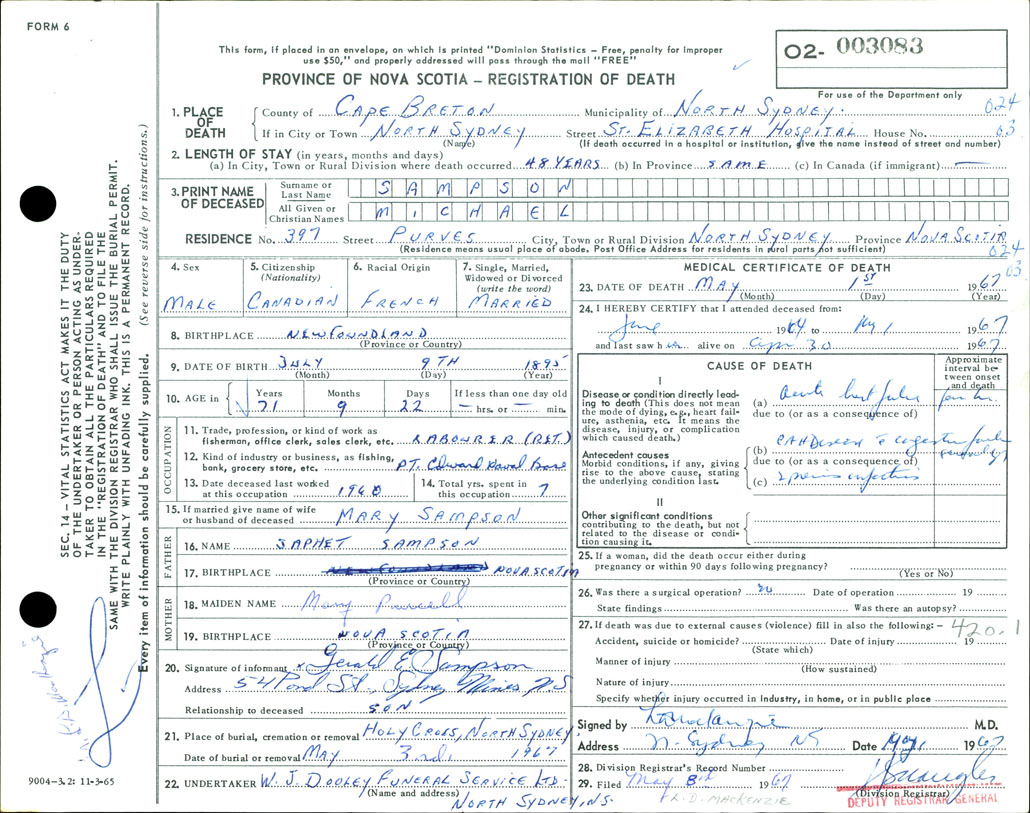 FORM 6
This form, if placed in an envelope, on which is printed "Dominion Statistics – Free, penalty for improper
use $50," and properly addressed will pass through the mail "FREE"
O2- 003083
PROVINCE OF NOVA SCOTIA – REGISTRATION OF DEATH
For use of the Department only
1. PLACE OF DEATH
County of CAPE BRETON Municipality of NORTH SYDNEY. 024
If in City or Town NORTH SYDNEY Street ST. ELIZABETH HOSPITAL House No. 03
(Name) (If death occurred in a hospital or institution, give the name instead of street and number)
2. LENGTH OF STAY (in years, months and days)
(a) In City, Town or Rural Division where death occurred 48 YEARS (b) In Province SAME (c) In Canada (if immigrant) —
3. PRINT NAME OF DECEASED
Surname or Last Name SAMPSON
All Given or Christian Names MICHAEL
RESIDENCE No. 397 Street PURVES City, Town or Rural Division NORTH SYDNEY Province NOVA SCOTIA
(Residence means usual place of abode. Post Office Address for residents in rural parts not sufficient)
024
03
4. Sex
MALE
5. Citizenship (Nationality)
CANADIAN
6. Racial Origin
FRENCH
7. Single, Married, Widowed or Divorced (write the word)
MARRIED
8. BIRTHPLACE NEWFOUNDLAND
(Province or Country)
9. DATE OF BIRTH JULY 9TH 1895
(Month) (Day) (Year)
10. AGE in
Years Months Days If less than one day old
71 9 22 — hrs. or — min.
OCCUPATION
11. Trade, profession, or kind of work as
fisherman, office clerk, sales clerk, etc. LABOURER (RET.)
12. Kind of industry or business, as fishing,
bank, grocery store, etc. PT. Edward Naval Base
13. Date deceased last worked
at this occupation 1960
14. Total yrs. spent in
this occupation 7
15. If married give name of wife
or husband of deceased MARY SAMPSON
FATHER
16. NAME JAPHET SAMPSON
17. BIRTHPLACE NEWFOUNDLAND NOVA SCOTIA
(Province or Country)
MOTHER
18. MAIDEN NAME Mary Purcell
19. BIRTHPLACE NOVA SCOTIA
(Province or Country)
20. Signature of informant x Gerald E. Sampson
Address 54 Pond St., Sydney Mines, N.S
Relationship to deceased SON
21. Place of burial, cremation or removal HOLY CROSS, NORTH SYDNEY
Date of burial or removal MAY 3rd. 1967
22. UNDERTAKER W. J. DOOLEY FUNERAL SERVICE LTD.
(Name and address)
NORTH SYDNEY, N.S.
MEDICAL CERTIFICATE OF DEATH
23. DATE OF DEATH MAY 1ST 1967
(Month) (Day) (Year)
24. I HEREBY CERTIFY that I attended deceased from:
June 1964 to May 1 1967
and last saw him alive on Apr 30 1967
CAUSE OF DEATH
Approximate interval between onset and death
I
Disease or condition directly leading to death (This does not mean
the mode of dying, e.g., heart failure, asthenia, etc. It means the
disease, injury, or complication
which caused death.)
(a) Acute heart failure
due to (or as a consequence of)
Antecedent causes
Morbid conditions, if any, giving
rise to the above cause, stating
the underlying condition last.
(b) congestive failure
due to (or as a consequence of)
(c)
II
Other significant conditions
contributing to the death, but not
related to the disease or condition causing it.
25. If a woman, did the death occur either during
pregnancy or within 90 days following pregnancy?
(Yes or No)
26. Was there a surgical operation? no Date of operation 19
State findings Was there an autopsy?
27. If death was due to external causes (violence) fill in also the following: – 420.1
Accident, suicide or homicide? Date of injury 19
(State which)
Manner of injury
(How sustained)
Nature of injury
Specify whether injury occurred in Industry, in home, or in public place
Signed by M.D.
Address N. Sydney NS Date May 1967
28. Division Registrar's Record Number
29. Filed May 8th 1967
(Division Registrar)
L. D. MACKENZIE
DEPUTY REGISTRAR GENERAL
SEC. 14 – VITAL STATISTICS ACT MAKES IT THE DUTY
OF THE UNDERTAKER OR PERSON ACTING AS UNDERTAKER
TO OBTAIN ALL THE PARTICULARS REQUIRED
IN THE "REGISTRATION OF DEATH" AND TO FILE THE
SAME WITH THE DIVISION REGISTRAR WHO SHALL ISSUE THE BURIAL PERMIT.
WRITE PLAINLY WITH UNFADING INK. THIS IS A PERMANENT RECORD.
Every item of information should be carefully supplied. (See reverse side for instructions.)
9004-3.2: 11-3-65